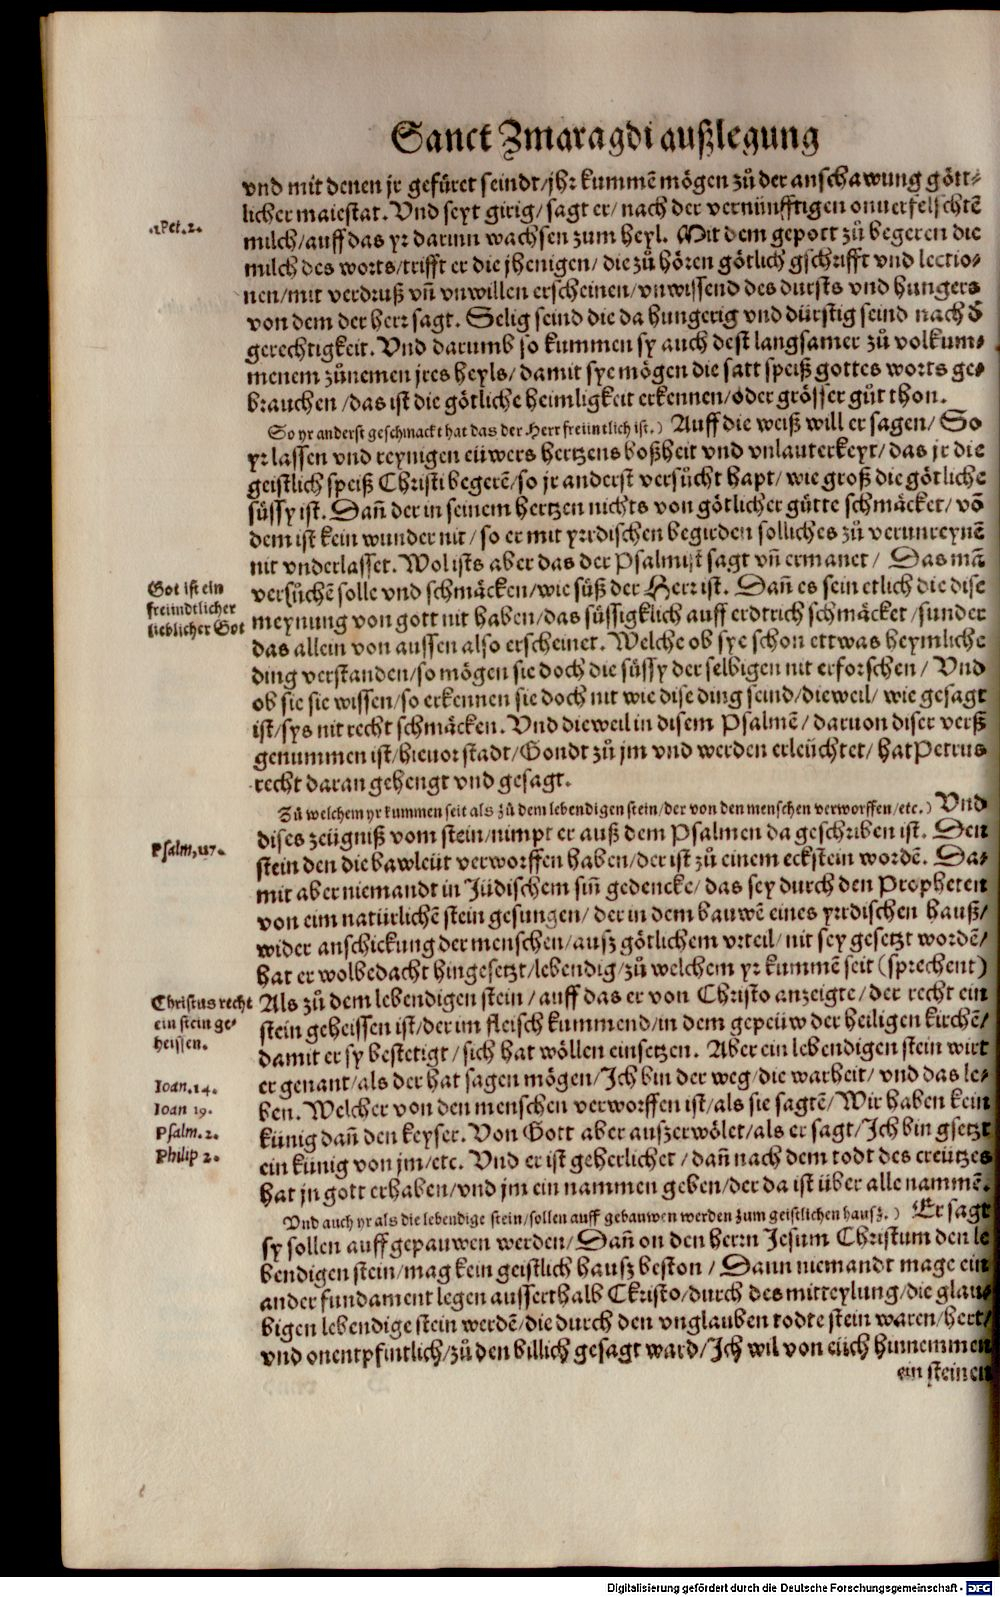 Sanct Zmaragdi außlegung
vnd mit denen jr gefüret seindt/jhr kummē mögen zů der anschawung gött⸗
licher maiestat. Vnd seyt girig/ sagt er/ nach der vernünfftigen onuerfelschtē
1.Pet.2.
milch/auff das yr darinn wachsen zum heyl. Mit dem gepott zů begeren die
milch des worts/trifft er die jhenigen/ die zů hören götlich gschrifft vnd lectio⸗
nen/mit verdruß vñ vnwillen erscheinen/vnwissend des dursts vnd hungers
von dem der herr sagt. Selig seind die da hungerig vnd dürstig seind nach d̄
gerechtigkeit. Vnd darumb so kummen sy auch dest langsamer zů volkum⸗
menem zůnemen jres heyls/ damit sye mögen die satt speiß gottes worts ge⸗
brauchen /das ist die götliche heimligkeit erkennen/oder grösser gůt thon.
So yr anderst geschmackt hat das der Herr freüntlich ist.) Auff die weiß will er sagen/ So
yr lassen vnd reynigen eüwers hertzens boßheit vnd vnlauterkeyt/das jr die
geistlich speiß Christi begerē/so jr anderst versücht hapt/ wie groß die götliche
süssy ist. Dañ der in seinem hertzen nichts von götlicher gütte schmäcket/ võ
dem ist kein wunder nit/ so er mit yrrdischen begirden solliches zů verunreynē
nit vnderlasset. Wol ists aber das der Psalmist sagt vñ ermanet/ Das mã
Got ist ein
freündtlicher
lieblicher Got
versůchē solle vnd schmäcken/wie süß der Herr ist. Dañ es sein etlich die dise
meynung von gott nit haben/das süssigklich auff erdtrich schmäcket/sunder
das allein von aussen also erscheinet. Welche ob sye schon ettwas heymliche
ding verstanden/so mögen sie doch die süssy der selbigen nit erforschen/ Vnd
ob sie sie wissen/so erkennen sie doch nit wie dise ding seind/dieweil/ wie gesagt
ist/sys nit recht schmäcken. Vnd dieweil in disem Psalmē/ daruon diser verß
genummen ist/hieuor stadt/Gondt zů jm vnd werden erleüchtet/ hat Petrus
recht daran gehengt vnd gesagt.
Zů welchem yr kummen seit als zů dem lebendigen stein/der von den menschen verworffen/etc.) Vnd
dises zeügniß vom stein/nimpt er auß dem Psalmen da geschriben ist. Den
Psalm,117.
stein den die bawleüt verworffen haben/der ist zů einem eckstein wordē. Da⸗
mit aber niemandt in Jüdischem siñ gedencke/das sey durch den Propheten
von eim natürlichē stein gesungen/ der in dem bauwē eines yrrdischen hauß/
wider anschickung der menschen/ausz götlichem vrteil/nit sey gesetzt wordē/
hat er wolbedacht hingesetzt/lebendig/zů welchem yr kummē seit (sprechent)
Christus recht
ein stein ge⸗
heissen.
Als zů dem lebendigen stein/auff das er von Christo anzeigte/der recht ein
stein geheissen ist/der im fleisch kummend/in dem gepeüw der heiligen kirchē/
damit er sy bestetigt/sich hat wöllen einsetzen. Aber ein lebendigen stein wirt
er genant/als der hat sagen mögen/Ich bin der weg/die warheit/ vnd das le⸗
Ioan.14.
ben. Welcher von den menschen verworffen ist/als sie sagtē/Wir haben kein
Ioan 19.
künig dañ den keyser. Von Gott aber auszerwölet/als er sagt/Ich bin gsetzt
Psalm.2.
ein künig von jm/etc. Vnd er ist geherlichet/ dañ nach dem todt des creützes
Philip 2.
hat jn gott erhaben/vnd jm ein nammen geben/der da ist über alle nammē.
Vnd auch yr als die lebendige stein/sollen auff gebauwen werden zum geistlichen hausz.) Er sagt
sy sollen auff gepauwen werden/Dañ on den herrn Jesum Christum den le
bendigen stein/mag kein geistlich hausz beston/ Dann niemandt mage ein
ander fundament legen ausserthalb Ckristo/durch des mitteylung/die glau⸗
bigen lebendige stein werdē/die durch den vnglauben todte stein waren/hert/
vnd onentpfintlich/zů den billich gesagt ward/Ich wil von eüch hinnemmen
ein steinen
Digitalisierung gefördert durch die Deutsche Forschungsgemeinschaft - DFG